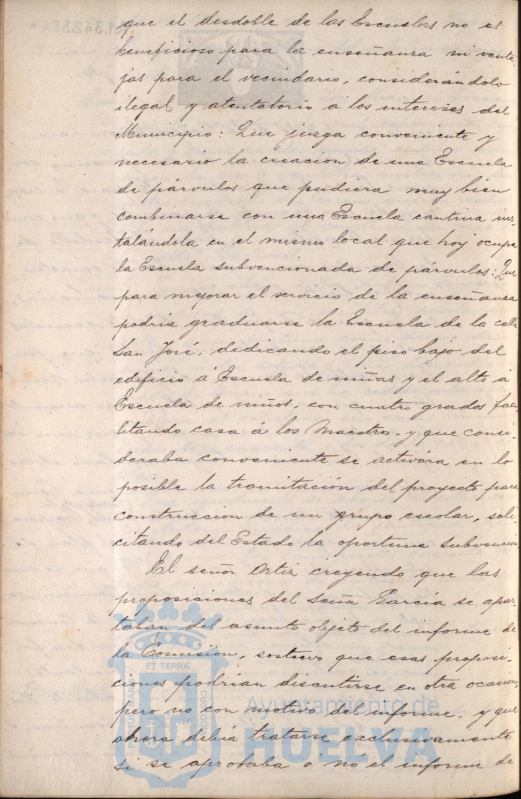 que el desdoble de las Escuelas no es
beneficioso para la enseñanza ni venta
jas para el vecindario, considerándolo
ilegal y atentatorio a los intereses del
Municipio: Que juzga conveniente y
necesario la creacion de una Escuela
de párvulos que pudiera muy bien
combinarse con una Escuela cantina ins
talándola en el mismo local que hoy ocupa
la Escuela subvencionada de párvulos: Que
para mejorar el servicio de la enseñanza
podria graduarse la Escuela de la calle
San José, dedicando el piso bajo del
edificio á Escuela de niñas y el alto á
Escuela de niños, con cuatro grados faci
litando casa á los Maestros, y que consi
deraba conveniente se activára en lo
posible la tramitación del proyecto para
construccion de un grupo escolar, soli
citando del Estado la oportuna subvencion
El señor Ortiz creyendo que las
proposiciones del Señor García se apar
taban del asunto objeto del informe de
la Comision, sostuvo que esas proposi
ciones podrían discutirse en otra ocasion,
pero no con motivo del informe, y que
ahora debía tratarse exclusivamente
si se aprobaba o no el informe de
ET TERRÆ
Ayuntamiento de
HUELVA